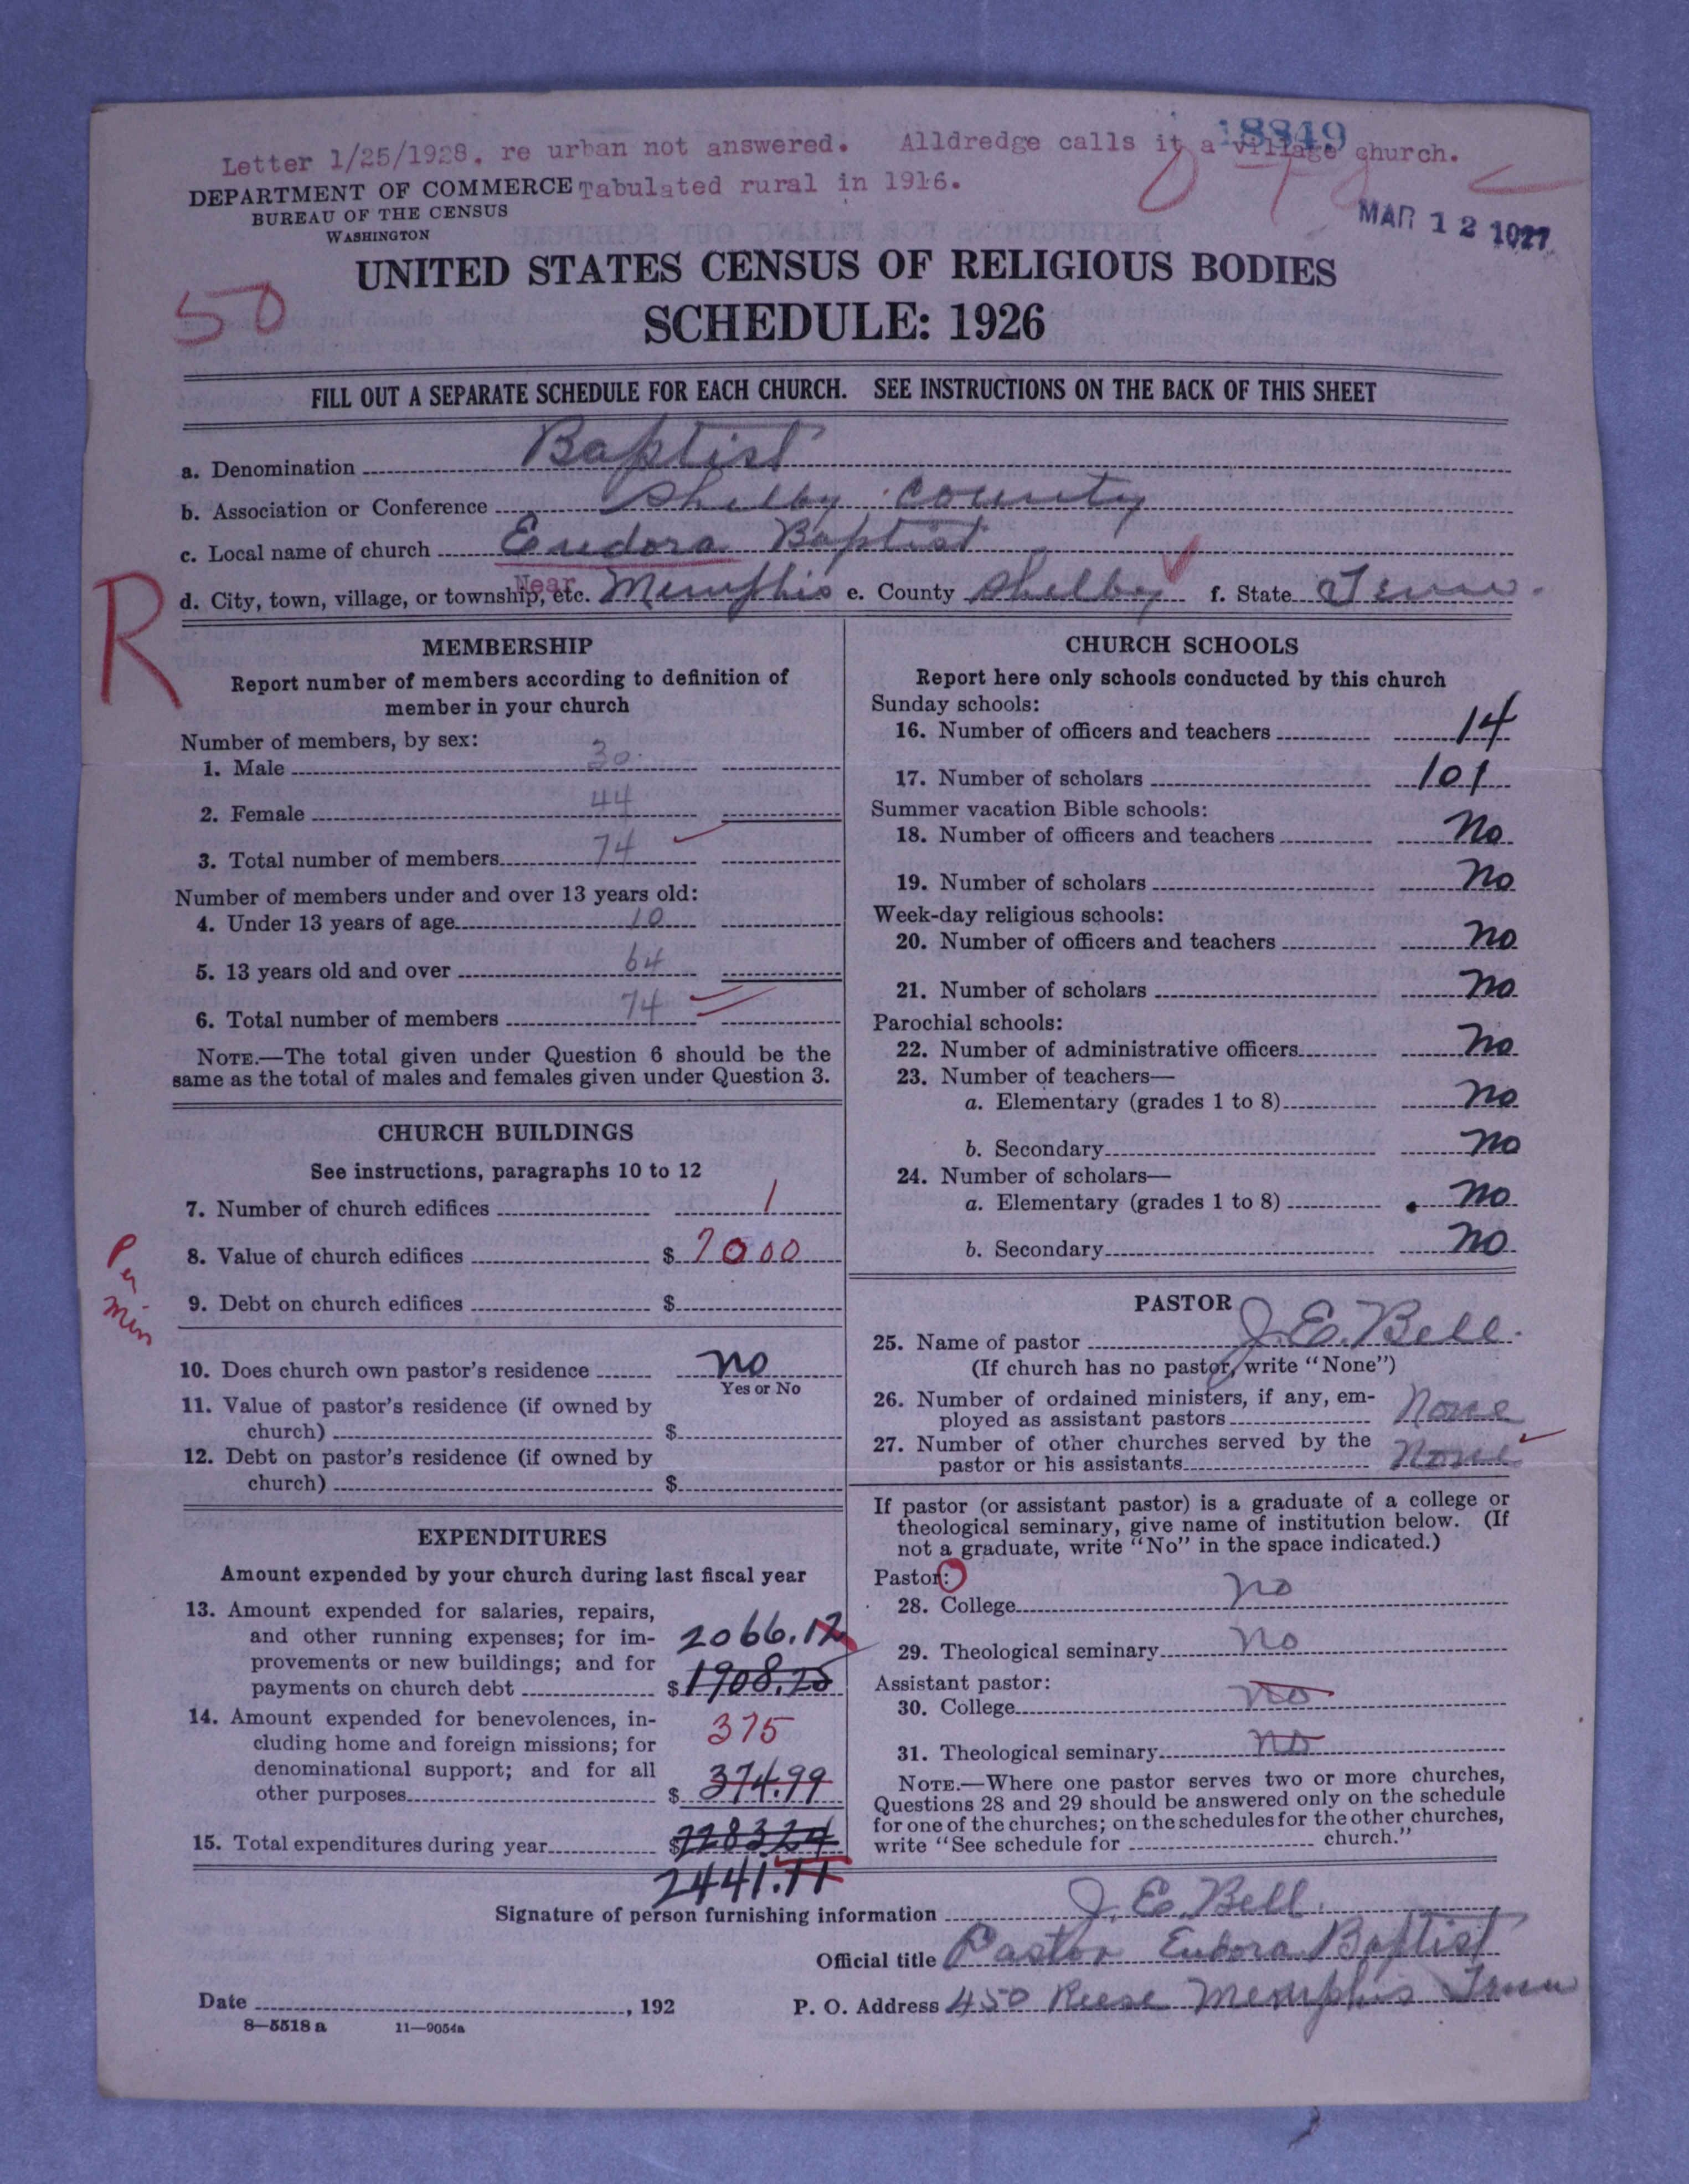 18849
Letter 1/25/1928. re urban not answered. Alldredge calls it a village church.
DEPARTMENT OF COMMERCE Tabulated rural in 1916.
BUREAU OF THE CENSUS
WASHINGTON
MAR 12 1927
UNITED STATES CENSUS OF RELIGIOUS BODIES
50
SCHEDULE: 1926
FILL OUT A SEPARATE SCHEDULE FOR EACH CHURCH. SEE INSTRUCTIONS ON THE BACK OF THIS SHEET
a. Denomination Baptist
b. Association or Conference Shelby County
c. Local name of church Eudora Baptist
R
d. City, town, village, or township, etc. Near Memphis e. County Shelby f. State Tenn.
MEMBERSHIP
Report number of members according to definition of
member in your church
Number of members, by sex:
1. Male 30
2. Female 44
3. Total number of members 74
Number of members under and over 13 years old:
4. Under 13 years of age 10
5. 13 years old and over 64
6. Total number of members 74
NOTE.—The total given under Question 6 should be the
same as the total of males and females given under Question 3.
CHURCH BUILDINGS
See instructions, paragraphs 10 to 12
7. Number of church edifices 1
8. Value of church edifices $ 7000
Per
Min
9. Debt on church edifices $
10. Does church own pastor's residence no
Yes or No
11. Value of pastor's residence (if owned by
church) $
12. Debt on pastor's residence (if owned by
church) $
EXPENDITURES
Amount expended by your church during last fiscal year
13. Amount expended for salaries, repairs,
and other running expenses; for im- 2066.12
provements or new buildings; and for
payments on church debt $ 1908.25
14. Amount expended for benevolences, in- 375
cluding home and foreign missions; for
denominational support; and for all
other purposes $ 374.99
15. Total expenditures during year $ 2283.24
2441.11
CHURCH SCHOOLS
Report here only schools conducted by this church
Sunday schools:
16. Number of officers and teachers 14
17. Number of scholars 101
Summer vacation Bible schools:
18. Number of officers and teachers No
19. Number of scholars No
Week-day religious schools:
20. Number of officers and teachers no
21. Number of scholars no
Parochial schools:
22. Number of administrative officers no
23. Number of teachers—
a. Elementary (grades 1 to 8) no
b. Secondary no
24. Number of scholars—
a. Elementary (grades 1 to 8) no
b. Secondary no
PASTOR
25. Name of pastor J. E. Bell.
(If church has no pastor, write "None")
26. Number of ordained ministers, if any, em-
ployed as assistant pastors None
27. Number of other churches served by the
pastor or his assistants None
If pastor (or assistant pastor) is a graduate of a college or
theological seminary, give name of institution below. (If
not a graduate, write "No" in the space indicated.)
Pastor:
28. College no
29. Theological seminary no
Assistant pastor:
30. College no
31. Theological seminary no
NOTE.—Where one pastor serves two or more churches,
Questions 28 and 29 should be answered only on the schedule
for one of the churches; on the schedules for the other churches,
write "See schedule for church."
Signature of person furnishing information J. E. Bell.
Official title Pastor Eudora Baptist
Date , 192 P. O. Address 450 Reese Memphis Tenn
8—5518 a 11—9054a